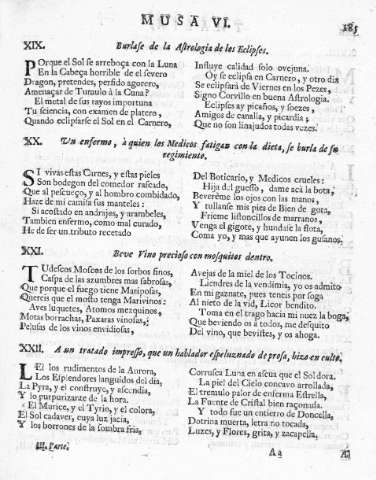 MUSA VI. 185
XIX. Burlase de la Astrologia de los Eclipses.
Porque el Sol se arreboça con la Luna
En la Cabeça horrible de el severo
Dragon, pretendes, perfido agorero,
Amenaçar de Tumulo à la Cuna?
El metal de sus rayos importuna
Tu sciencia, con examen de platero,
Quando eclipsarse el Sol en el Carnero,
Influye calidad solo ovejuna.
Oy se eclipsa en Carnero, y otro dia
Se eclipsarà de Viernes en los Pezes,
Signo Corvillo en buena Astrologia.
Eclipses ay picaños, y soezes,
Amigos de canalla, y picardia;
Que no son linajudos todas vezes.
XX. Un enfermo, à quien los Medicos fatigan con la dieta, se burla de su
regimiento.
Si vivas estas Carnes, y estas pieles
Son bodegon del comedor rascado,
Que al pescueço, y al hombro combidado,
Haze de mi camisa sus manteles:
Si acostado en andrajos, y arambeles,
Tambien enfermo, como mal curado,
He de ser un tributo recetado
Del Boticario, y Medicos crueles:
Hija del guesso, dame acà la bota,
Beverème los ojos con las manos,
Y tullanse mis pies de Bien de gota,
Frieme listoncillos de marranos,
Venga el gigote, y hundase la flota,
Como yo, y mas que ayunen los gusanos.
XXI. Beve Vino precioso con mosquitos dentro.
Tudescos Moscos de los sorbos finos,
Caspa de las azumbres mas sabrosas,
Que porque el fuego tiene Mariposas,
Quereis que el mosto tenga Marivinos:
Aves luquetes, Atomos mezquinos,
Motas borrachas, Paxaras vinosas;
Pelusas de los vinos envidiosas,
Avejas de la miel de los Tocinos.
Liendres de la vendimia, yo os admito
En mi gaznate, pues teneis por soga
Al nieto de la vid, Licor bendito.
Toma en el trago hacia mi nuez la boga,
Que beviendo os à todos, me desquito
Del vino, que bevistes, y os ahoga.
XXII. A un tratado impresso, que un hablador espeluznado de prosa, hizo en culto.
Leí los rudimentos de la Aurora,
Los Esplendores languidos del dia,
La Pyra, y el construyo, y ascendia,
Y lo purpurizante de la hora.
El Murice, y el Tyrio, y el colora,
El Sol cadaver, cuya luz jacia,
Y los borrones de la sombra fria,
Corrusca Luna en ascua que el Sol dora.
La piel del Cielo concavo arrollada,
El tremulo palor de enferma Estrella,
La Fuente de Cristal bien raçonada.
Y todo fue un entierro de Doncella,
Dotrina muerta, letra no tocada,
Luzes, y Flores, grita, y zacapella,
III. Parte. Aa